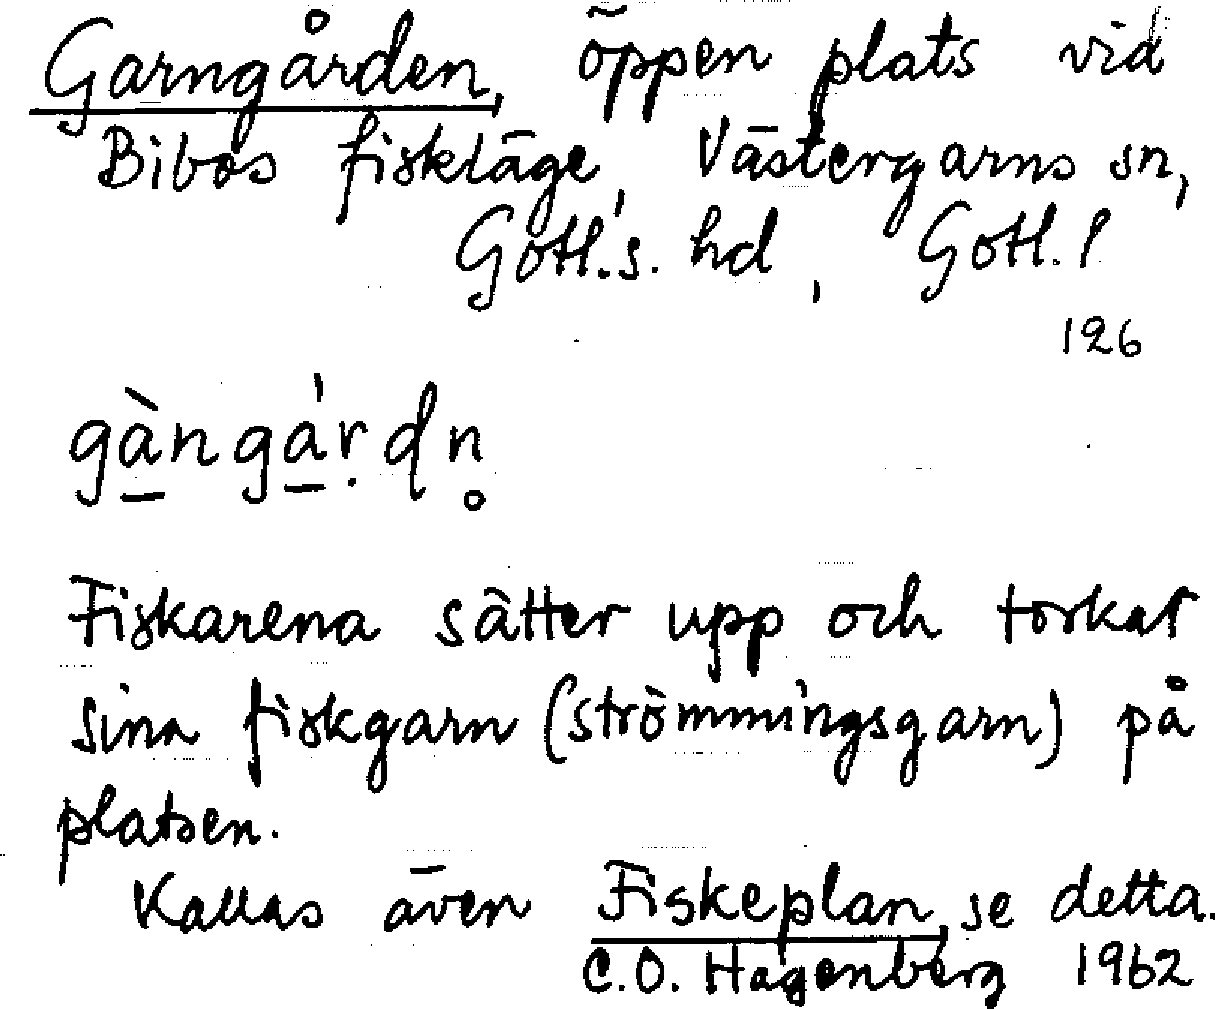 Garngården, öppen plats vid
Bibos fiskläge, Västergarns sn,
Gotl. s. hd, Gotl. l
126
gàngárdn̥
Fiskarena sätter upp och torkar
sina fiskgarn (strömmingsgarn) på
platsen.
Kallas även Fiskeplan, se detta.
C.O. Hagenberg 1962